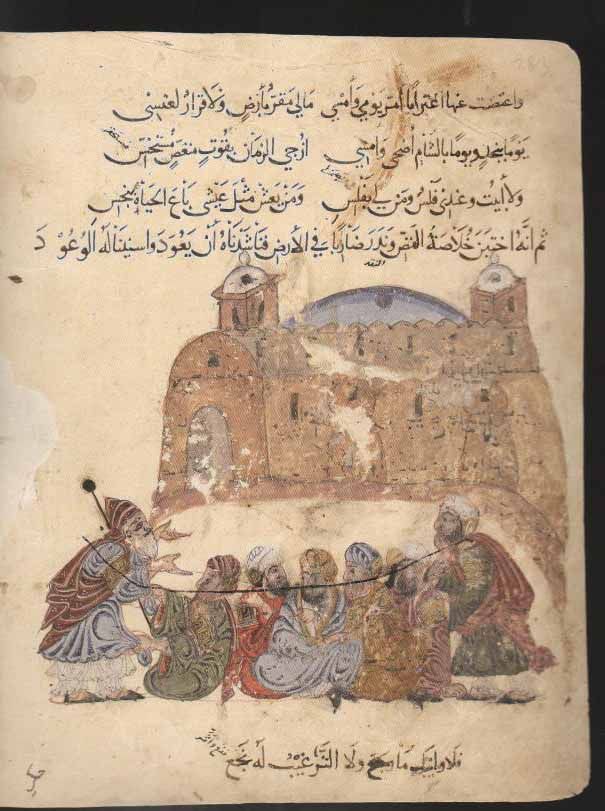 واعتضت عنها اغترابا أمر يومي وأمسي مالي مقر بأرض ولا قرار لعنسي
يوما بنجد ويوما بالشام أضحى وأمسي ازجي الزمان بقوت منغص مستخس
ولا أبيت وعندي فلس ومن لي بفلس ومن يعش مثل عيشي باع الحياة ببخس
ثم انه اختبن خلاصة وندر ضاربا في الأرض فناشدناه أن يعود واسنينا له الوعود
النقد
فلا وابيك ما رجع ولا الترغيب له نجع